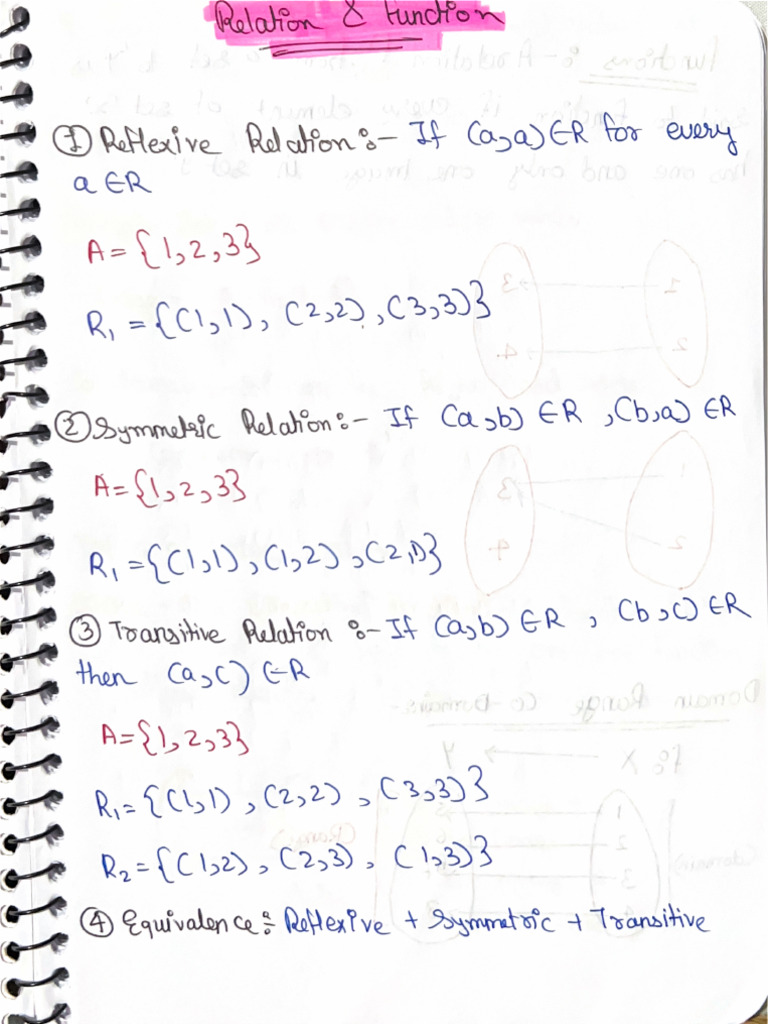 Relation & Function
① Reflexive Relation :- If (a,a)∈R for every
a ∈R
A = {1,2,3}
R₁ = {(1,1), (2,2), (3,3)}
② Symmetric Relation :- If (a,b) ∈R , (b,a) ∈R
A = {1,2,3}
R₁ = {(1,1), (1,2), (2,1)}
③ Transitive Relation :- If (a,b) ∈R , (b,c) ∈R
then (a,c) ∈R
A = {1,2,3}
R₁ = {(1,1), (2,2), (3,3)}
R₂ = {(1,2), (2,3), (1,3)}
④ Equivalence :- Reflexive + Symmetric + Transitive